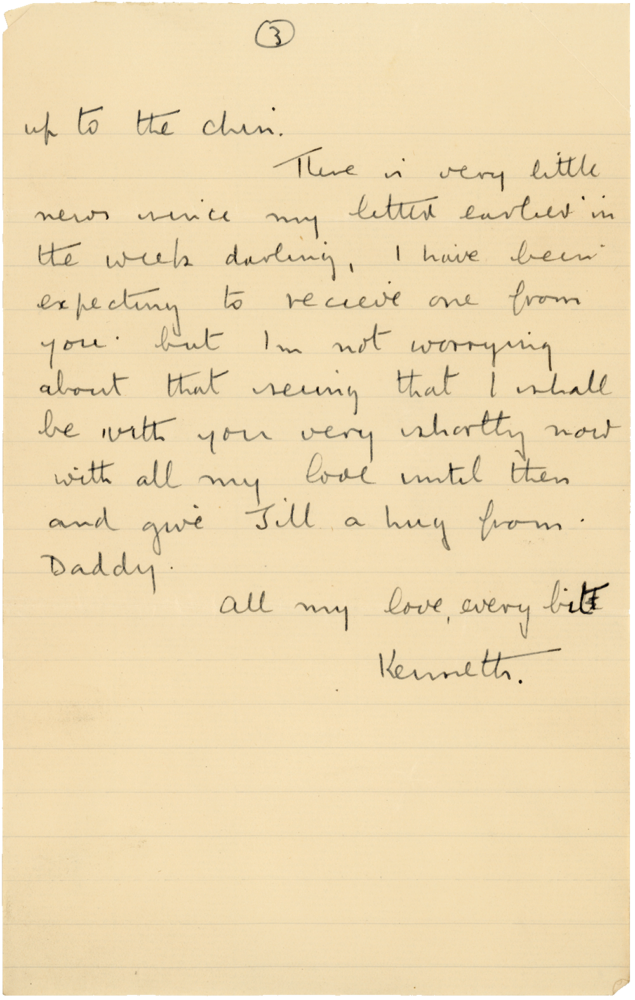 3
up to the chin.
There is very little
news since my letter earlier in
the week darling, I have been
expecting to recieve one from
you. but I'm not worrying
about that seeing that I shall
be with you very shortly now
with all my love until then
and give Jill a hug from
Daddy.
All my love, every bit
Kenneth.